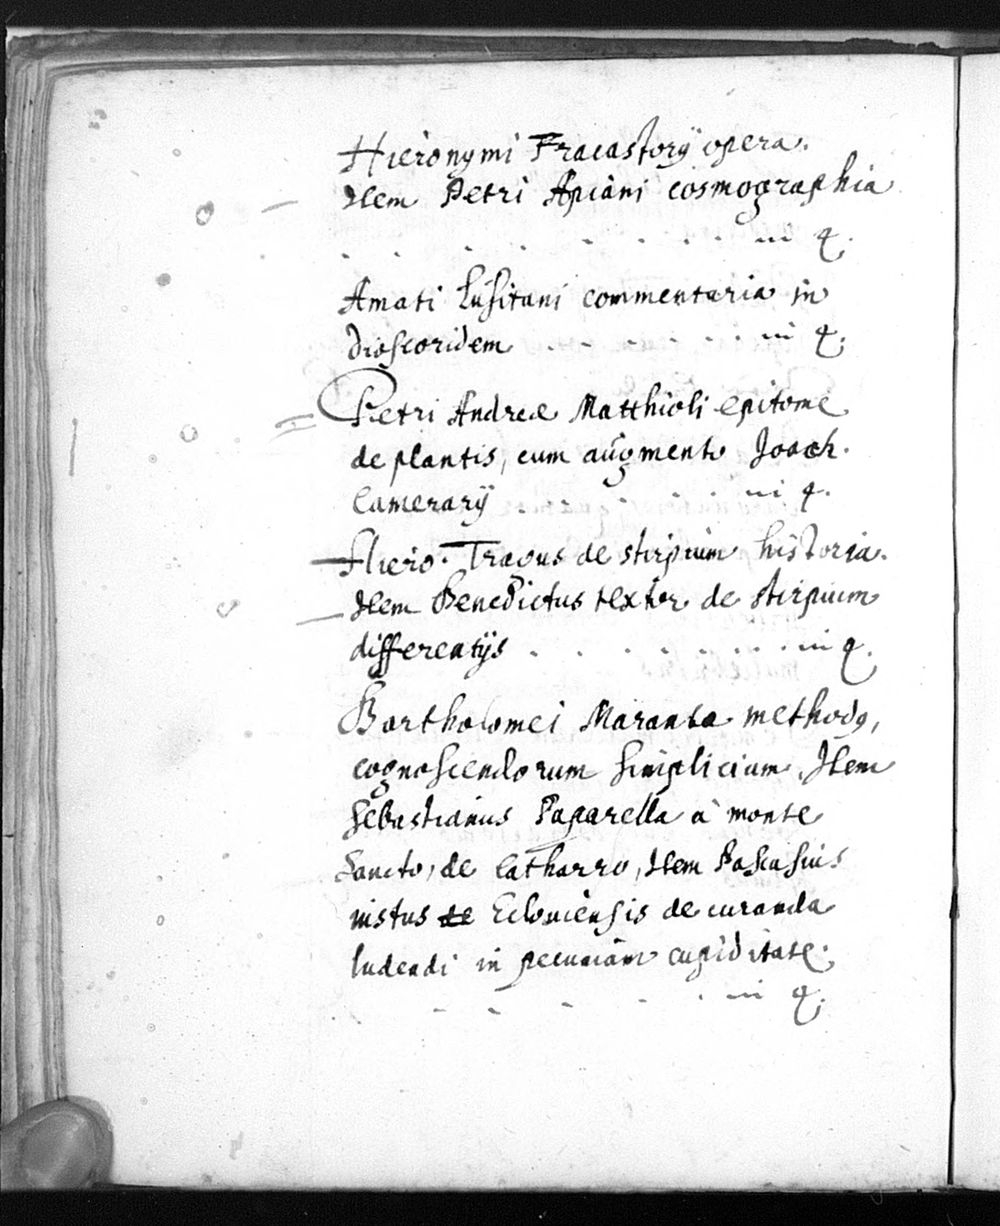 Hieronymi Fracastorÿ opera.
Item Petri Apiani cosmographia
. . . . . . . . in 4.
Amati Lusitani commentaria in
dioscoridem . . . . . . in 4.
Petri Andreæ Matthioli epitome
de plantis, cum augmento Joach.
Camerarÿ . . . . . . in 4.
Hiero. Tragus de stirpium historia.
Item Benedictus textor de stirpium
differentÿs . . . . . . . in 4.
Bartholomei Maranta methodq,
cognoscendorum simplicium. Item
Sebastianus Paparella à monte
sancto, de Catharro, Item Pascasius
iustus de Ecloviensis de curanda
ludendi in pecuniam cupiditate.
. . . . . . in 4.